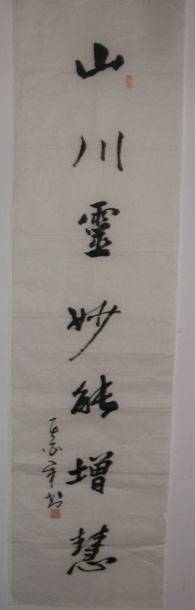 山川靈妙能增慧